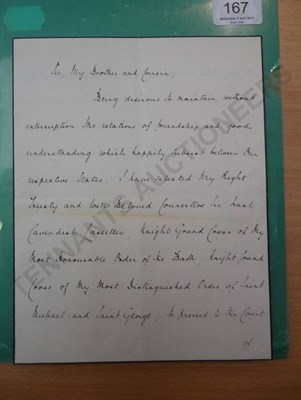 167
Sir, My Brother and Cousin,
Being desirous to maintain without
interruption the relations of friendship and good
understanding which happily subsist between Our
respective States, I have selected My Right
Trusty and Well Beloved Councillor Sir Frank
Cavendish Lascelles, Knight Grand Cross of My
Most Honourable Order of the Bath, Knight Grand
Cross of My Most Distinguished Order of Saint
Michael and Saint George, to proceed to the Court
of
TENNANTS AUCTIONEERS